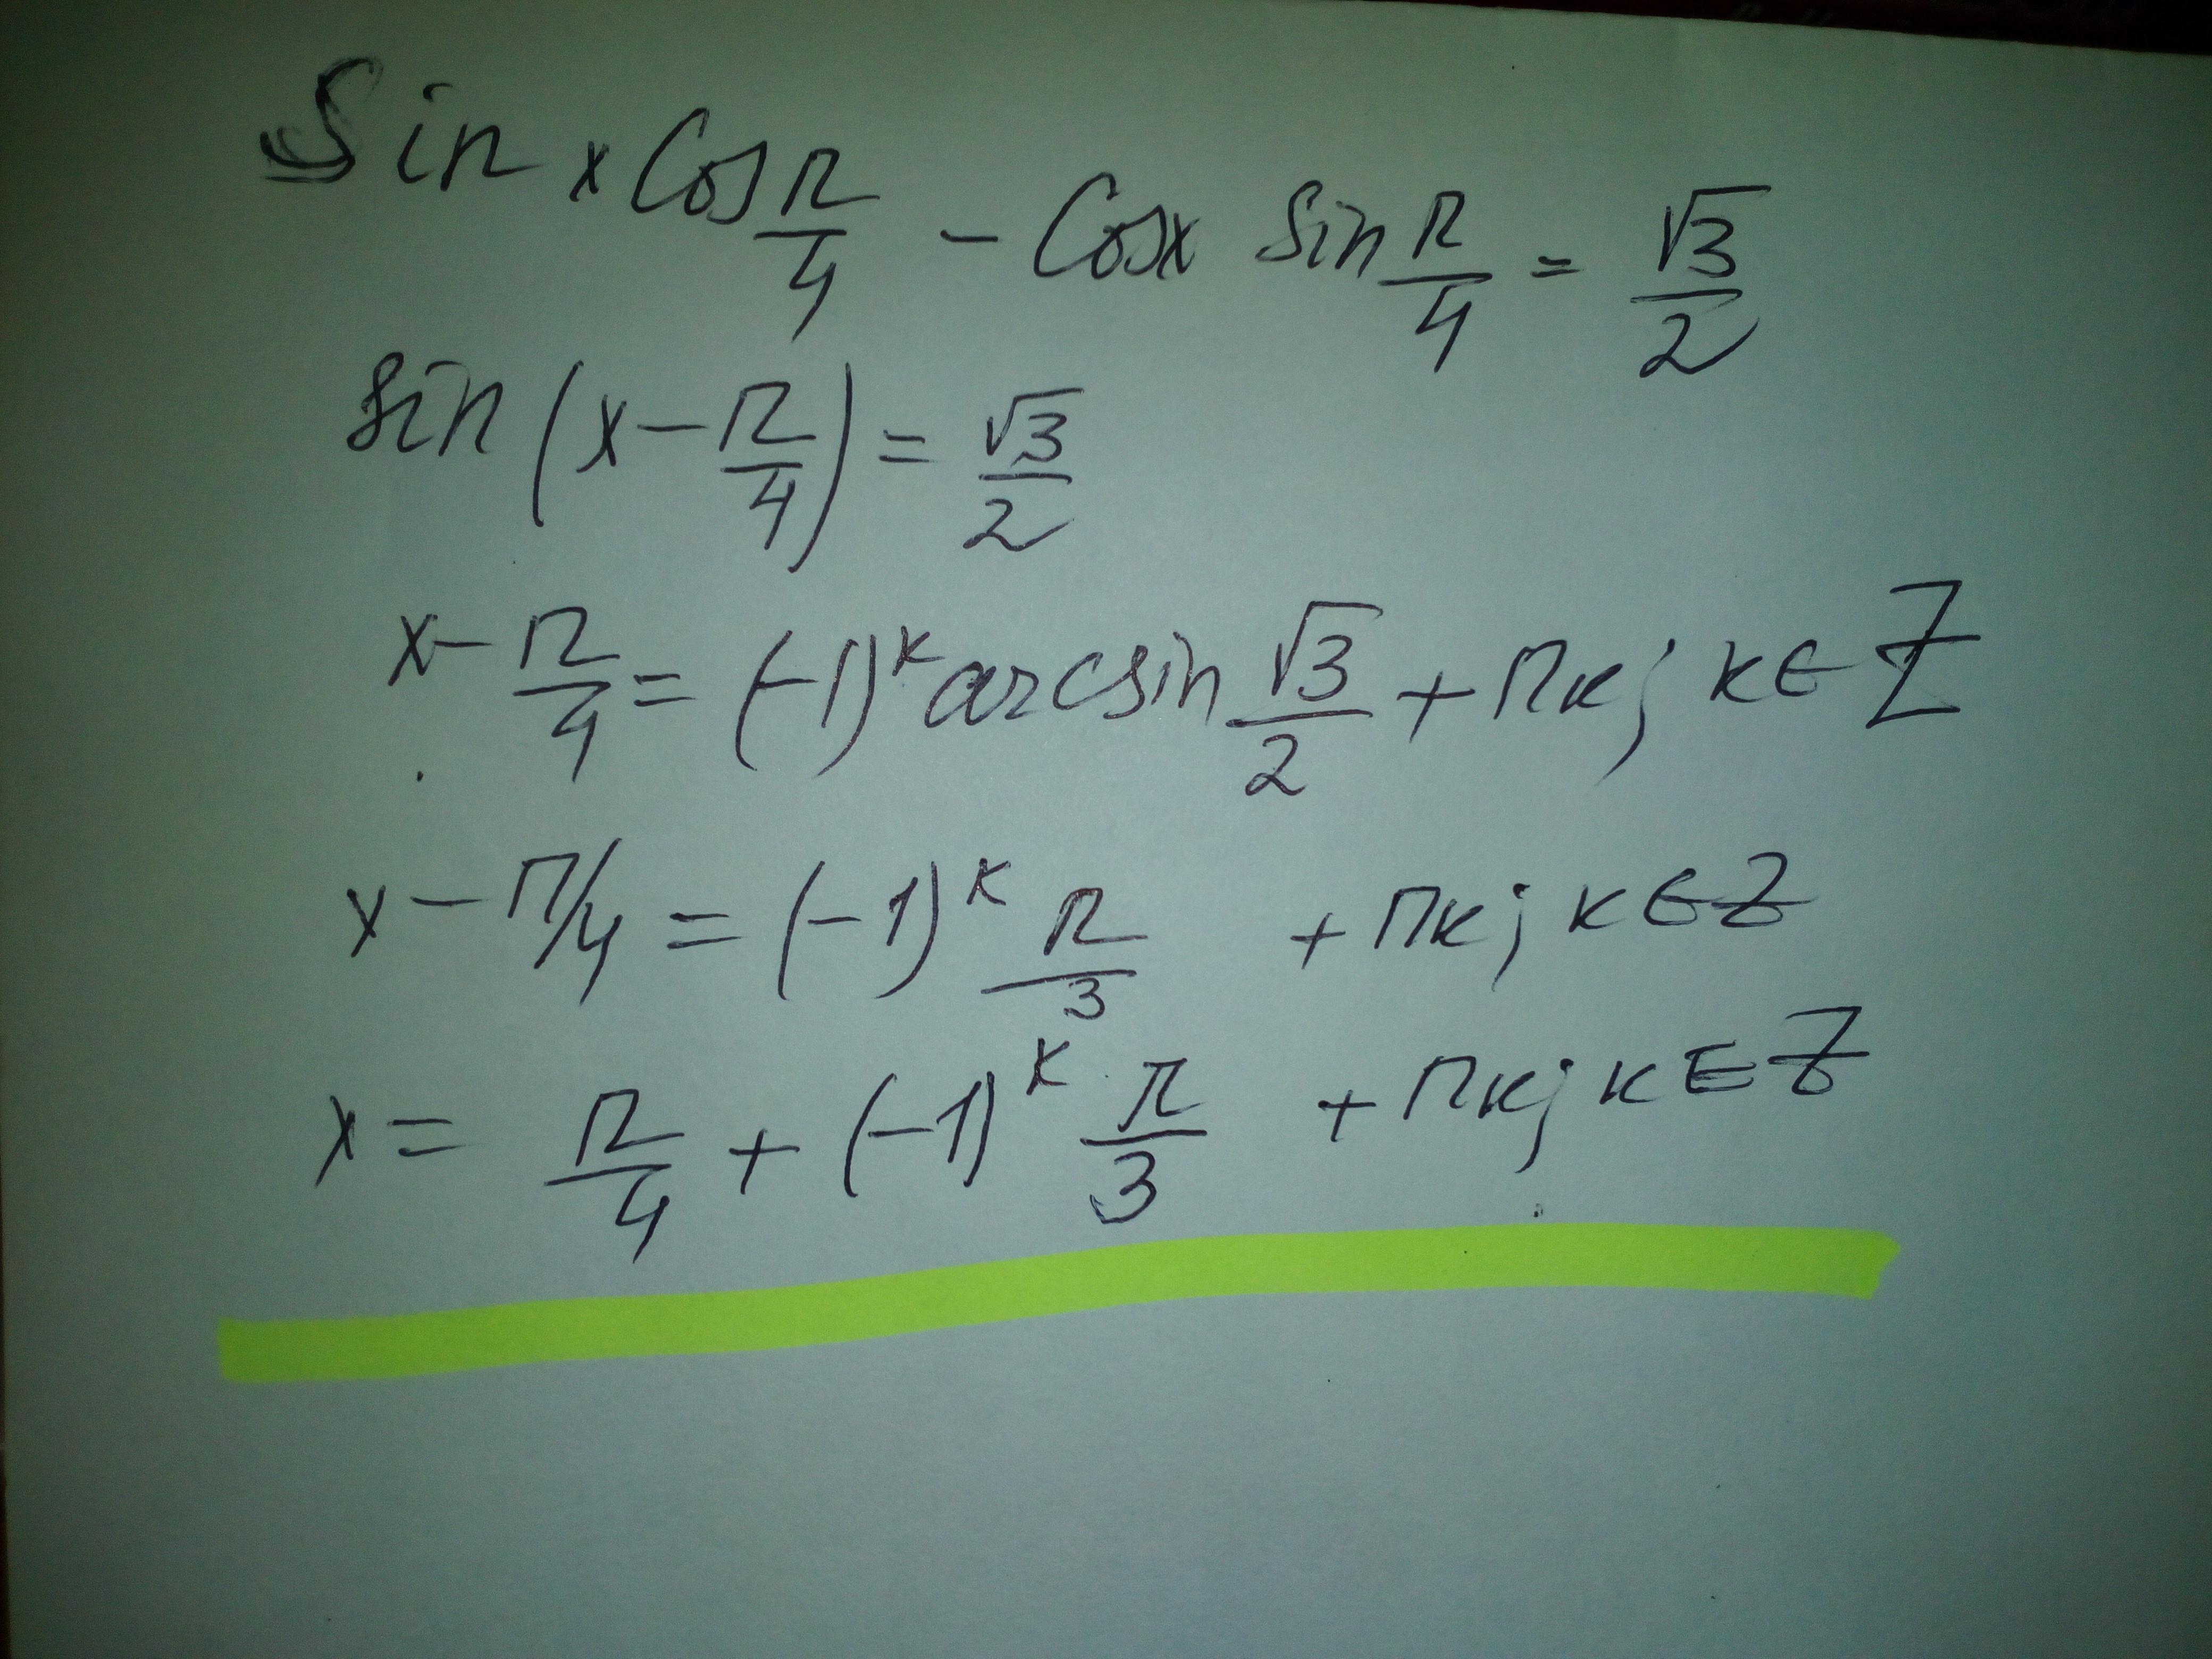 Sin x Cos π/4 - Cosx Sin π/4 = √3/2
sin (x - π/4) = √3/2
x - π/4 = (-1)^k arcsin √3/2 + πk; k ∈ Z
x - π/4 = (-1)^k π/3 + πk; k ∈ Z
x = π/4 + (-1)^k π/3 + πk; k ∈ Z